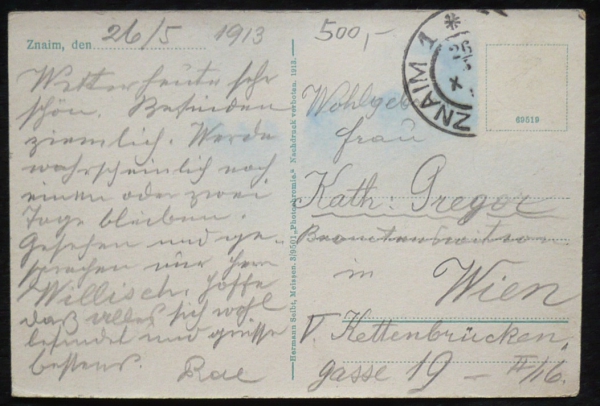 Znaim, den 26/5 1913
Wetter heute sehr
schön. Befinden
ziemlich. Werde
wahrscheinlich noch
einen oder zwei
Tage bleiben.
Gesehen und ge-
sprochen nur Herr
Willisch. Hoffe
daß alles sich wohl
befindet und grüsse
bestens.
Hermann Seibt, Meissen. „Photochromie.“ Nachdruck verboten. 1913.
500,-
ZNAIM 1
69519
Frau
Kath: Gregor
in
Wien
V. Kettenbrücken,
gasse 19 – II/16.